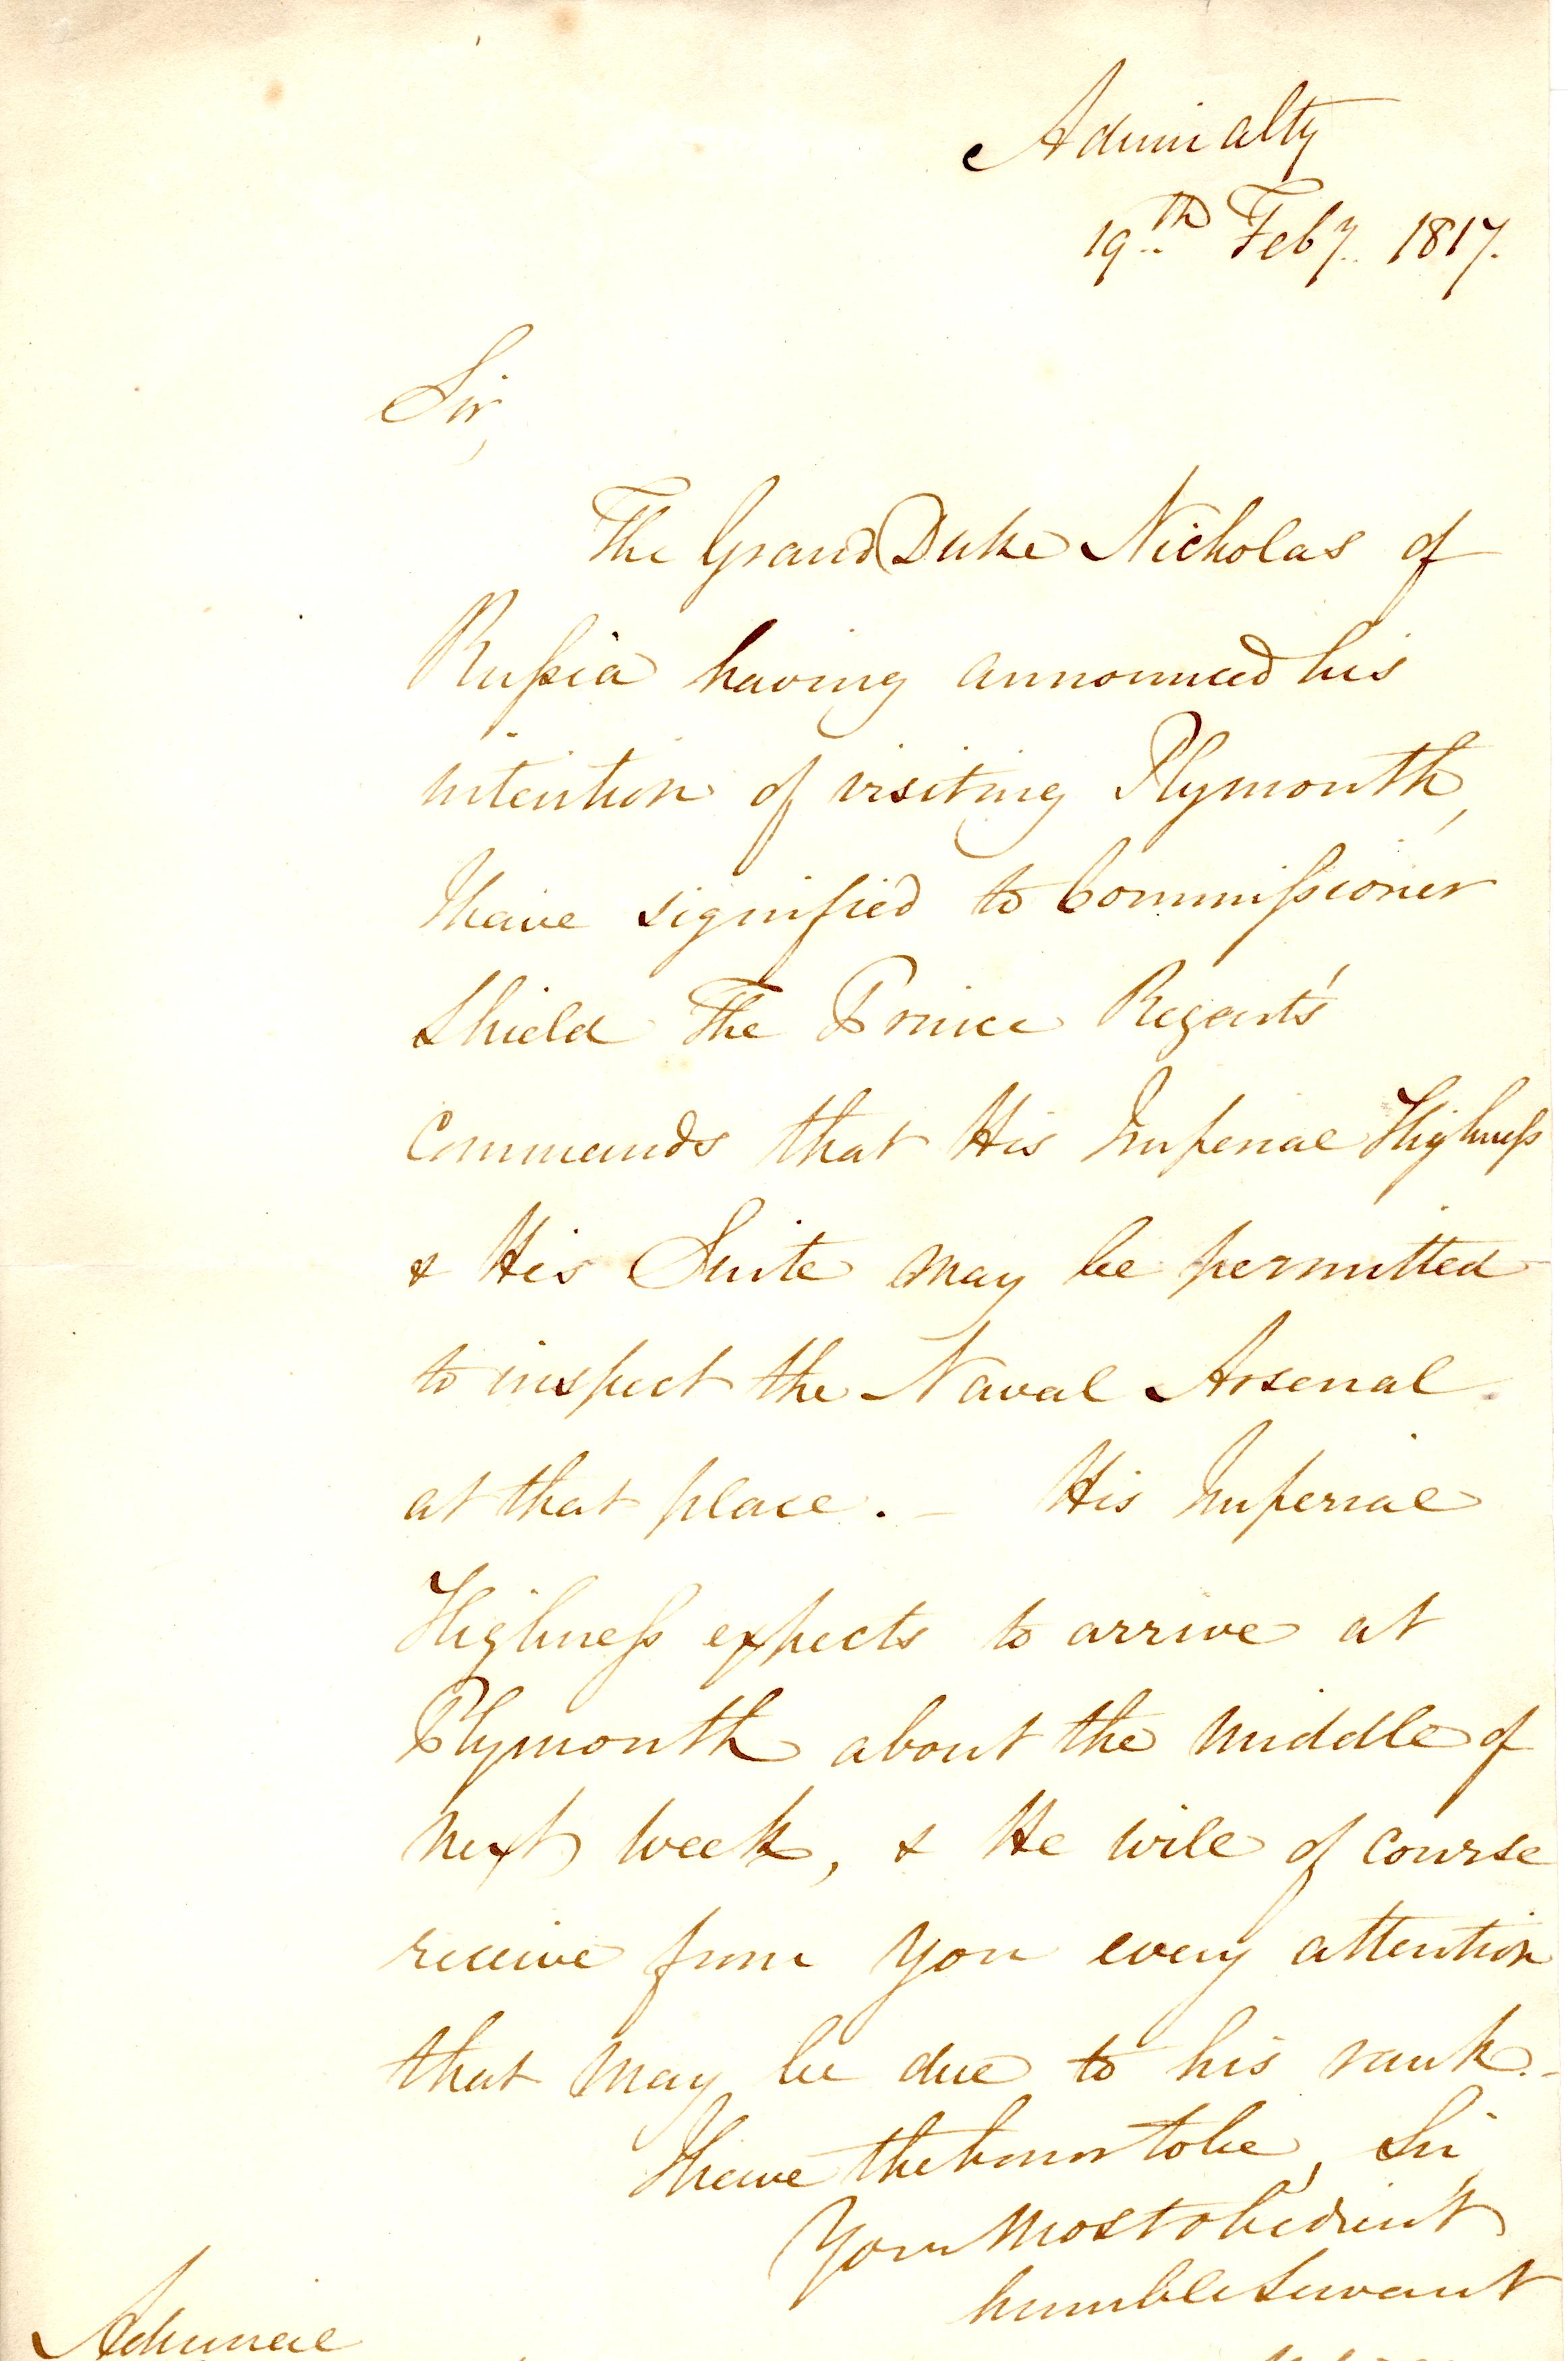 Admiralty
19th Feby. 1817.
Sir,
The Grand Duke Nicholas of
Russia having announced his
intention of visiting Plymouth,
I have signified to Commissioner
Shield The Prince Regent's
Commands that His Imperial Highness
& His Suite may be permitted
to inspect the Naval Arsenal
at that place. – His Imperial
Highness expects to arrive at
Plymouth about the middle of
next week, & He will of course
receive from you every attention
that may be due to his rank. –
I have the honor to be, Sir
Your most obedient
humble Servant
Admiral